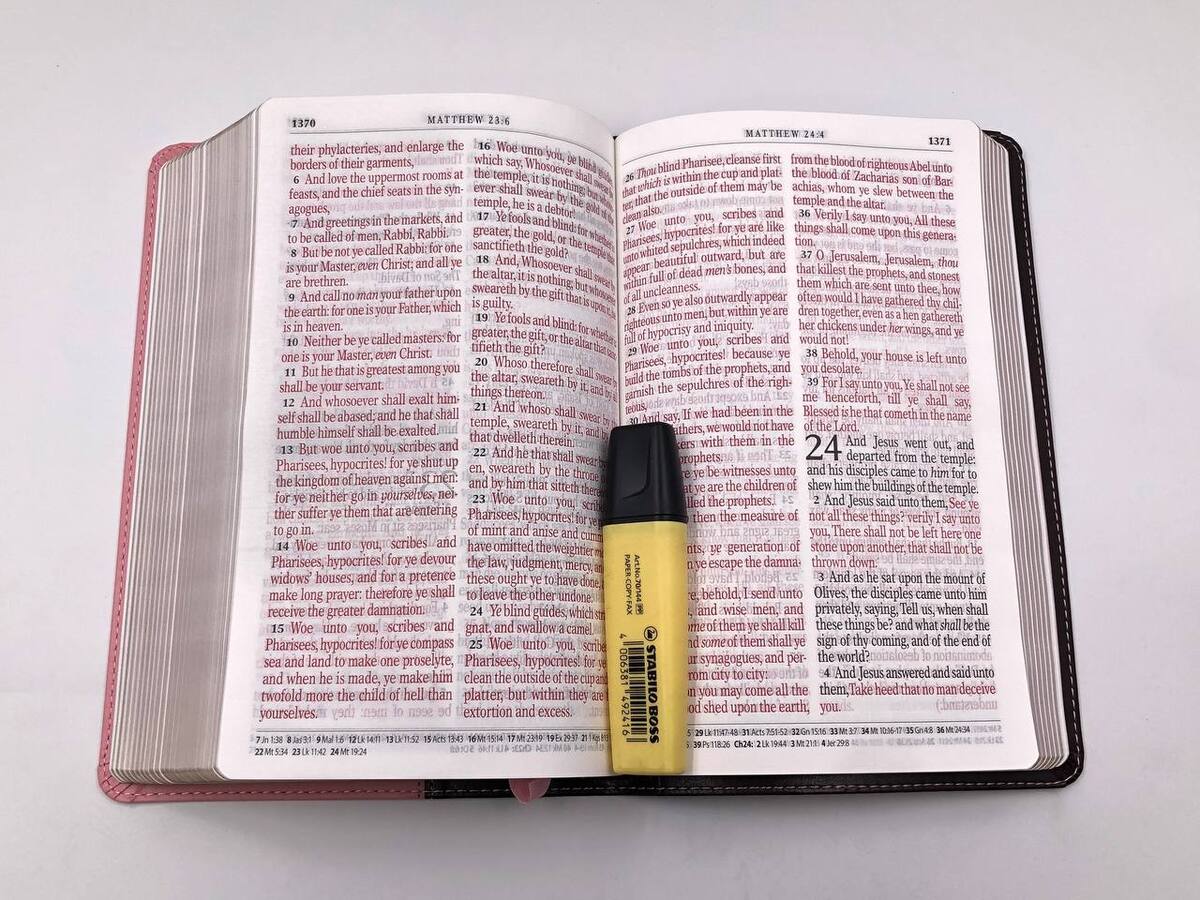 1370
MATTHEW 23:6
their phylacteries, and enlarge the
borders of their garments,
6 And love the uppermost rooms at
feasts, and the chief seats in the syn-
agogues,
7 And greetings in the markets, and
to be called of men, Rabbi, Rabbi.
8 But be not ye called Rabbi: for one
is your Master, even Christ; and all ye
are brethren.
9 And call no man your father upon
the earth: for one is your Father, which
is in heaven.
10 Neither be ye called masters: for
one is your Master, even Christ.
11 But he that is greatest among you
shall be your servant.
12 And whosoever shall exalt him-
self shall be abased; and he that shall
humble himself shall be exalted.
13 But woe unto you, scribes and
Pharisees, hypocrites! for ye shut up
the kingdom of heaven against men:
for ye neither go in yourselves, nei-
ther suffer ye them that are entering
to go in.
14 Woe unto you, scribes and
Pharisees, hypocrites! for ye devour
widows' houses, and for a pretence
make long prayer: therefore ye shall
receive the greater damnation.
15 Woe unto you, scribes and
Pharisees, hypocrites! for ye compass
sea and land to make one proselyte,
and when he is made, ye make him
twofold more the child of hell than
yourselves.
16 Woe unto you, ye blind
which say, Whosoever shall swear
the temple, it is nothing; but
ever shall swear by the gold of the
temple, he is a debtor!
17 Ye fools and blind: for whether
greater, the gold, or the temple
sanctifieth the gold?
18 And, Whosoever shall swear
the altar, it is nothing; but whosoever
sweareth by the gift that is upon it,
is guilty.
19 Ye fools and blind: for whether
greater, the gift, or the altar that
tifieth the gift?
20 Whoso therefore shall swear
the altar, sweareth by it, and by
things thereon.
21 And whoso shall swear by
temple, sweareth by it, and by
that dwelleth therein.
22 And he that shall swear by
en, sweareth by the throne
and by him that sitteth
23 Woe unto you, scribes
Pharisees, hypocrites! for ye
of mint and anise and
have omitted the weightier
the law, judgment, mercy, and
these ought ye to have done,
to leave the other undone.
24 Ye blind guides, which
gnat, and swallow a camel.
25 Woe unto you, scribes
Pharisees, hypocrites! for ye
clean the outside of the cup and
platter, but within they are
extortion and excess.
7 Jn 1:38 8 Jas 3:1 9 Mal 1:6 12 Lk 14:11 13 Lk 11:52 15 Acts 13:43 16 Mt 15:14 17 Mt 23:19 19 Ex 29:37 21 1 Kgs
22 Mt 5:34 23 Lk 11:42 24 Mt 19:24
MATTHEW 24:4
1371
26 Thou blind Pharisee, cleanse first
that which is within the cup and plat-
ter, that the outside of them may be
clean also.
27 Woe unto you, scribes and
Pharisees, hypocrites! for ye are like
unto whited sepulchres, which indeed
appear beautiful outward, but are
within full of dead men's bones, and
of all uncleanness.
28 Even so ye also outwardly appear
righteous unto men, but within ye are
full of hypocrisy and iniquity.
29 Woe unto you, scribes and
Pharisees, hypocrites! because ye
build the tombs of the prophets, and
garnish the sepulchres of the righ-
teous,
30 And say, If we had been in the
we would not have
with them in the
prophets.
ye be witnesses unto
ye are the children of
the prophets.
then the measure of
ye generation of
ye escape the damna-
behold, I send unto
and wise men, and
of them ye shall kill
and some of them shall ye
synagogues, and per-
from city to city:
you may come all the
shed upon the earth,
from the blood of righteous Abel unto
the blood of Zacharias son of Bar-
achias, whom ye slew between the
temple and the altar.
36 Verily I say unto you, All these
things shall come upon this genera-
tion.
37 O Jerusalem, Jerusalem, thou
that killest the prophets, and stonest
them which are sent unto thee, how
often would I have gathered thy chil-
dren together, even as a hen gathereth
her chickens under her wings, and ye
would not!
38 Behold, your house is left unto
you desolate.
39 For I say unto you, Ye shall not see
me henceforth, till ye shall say,
Blessed is he that cometh in the name
of the Lord.
24 And Jesus went out, and
departed from the temple:
and his disciples came to him for to
shew him the buildings of the temple.
2 And Jesus said unto them, See ye
not all these things? verily I say unto
you, There shall not be left here one
stone upon another, that shall not be
thrown down.
3 And as he sat upon the mount of
Olives, the disciples came unto him
privately, saying, Tell us, when shall
these things be? and what shall be the
sign of thy coming, and of the end of
the world?
4 And Jesus answered and said unto
them, Take heed that no man deceive
you.
29 Lk 11:47-48 31 Acts 7:51-52 32 Gn 15:16 33 Mt 3:7 34 Mt 10:16-17 35 Gn 4:8 36 Mt 24:34
39 Ps 118:26 Ch24: 2 Lk 19:44 3 Mt 21:1 4 Jer 29:8
Art.No.70/144
PAPER-COPY-FAX
STABILO BOSS
4 006381 492416